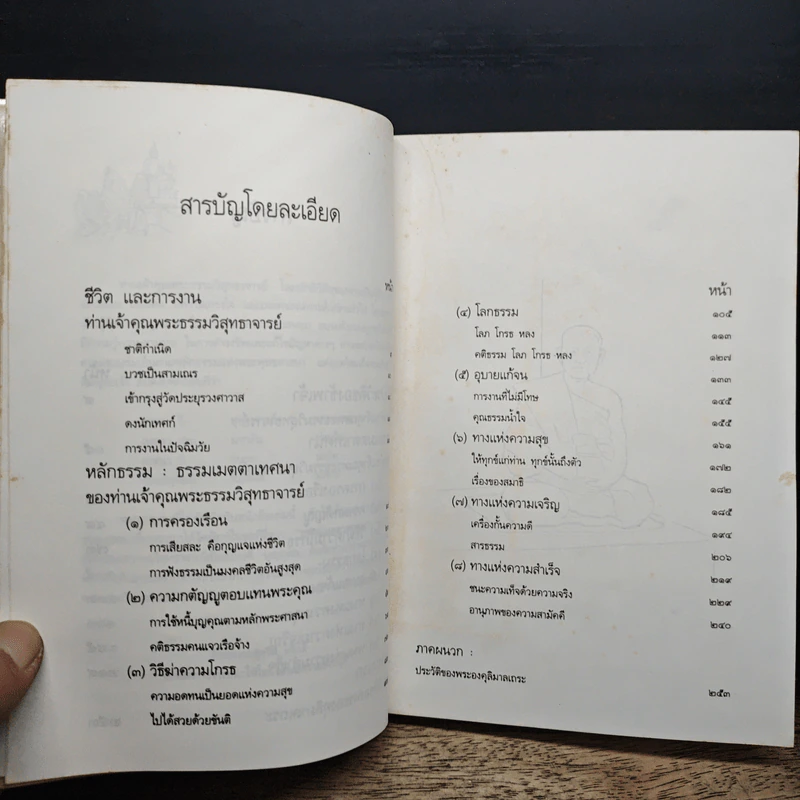 สารบัญโดยละเอียด
ชีวิต และการงาน
ท่านเจ้าคุณพระธรรมวิสุทธาจารย์
ชาติกำเนิด
บวชเป็นสามเณร
เข้ากรุงสู่วัดประยุรวงศาวาส
ดงนักเทศก์
การงานในปัจฉิมวัย
หลักธรรม : ธรรมเมตตาเทศนา
ของท่านเจ้าคุณพระธรรมวิสุทธาจารย์
(๑) การครองเรือน
การเสียสละ คือกุญแจแห่งชีวิต
การฟังธรรมเป็นมงคลชีวิตอันสูงสุด
(๒) ความกตัญญูตอบแทนพระคุณ
การใช้หนี้บุญคุณตามหลักพระศาสนา
คติธรรมคนแจวเรือจ้าง
(๓) วิธีฆ่าความโกรธ
ความอดทนเป็นยอดแห่งความสุข
ไปได้สวยด้วยขันติ
หน้า
(๔) โลกธรรม ๑๐๕
โลภ โกรธ หลง ๑๑๓
คติธรรม โลภ โกรธ หลง ๑๒๗
(๕) อุบายแก้จน ๑๓๓
การงานที่ไม่มีโทษ ๑๔๕
คุณธรรมน้ำใจ ๑๕๕
(๖) ทางแห่งความสุข ๑๖๑
ให้ทุกข์แก่ท่าน ทุกข์นั้นถึงตัว ๑๗๒
เรื่องของสมาธิ ๑๘๒
(๗) ทางแห่งความเจริญ ๑๘๕
เครื่องกั้นความดี ๑๙๔
สารธรรม ๒๐๖
(๘) ทางแห่งความสำเร็จ ๒๑๙
ชนะความเท็จด้วยความจริง ๒๒๙
อานุภาพของความสามัคคี ๒๔๐
ภาคผนวก :
ประวัติของพระองคุลิมาลเถระ ๒๕๓